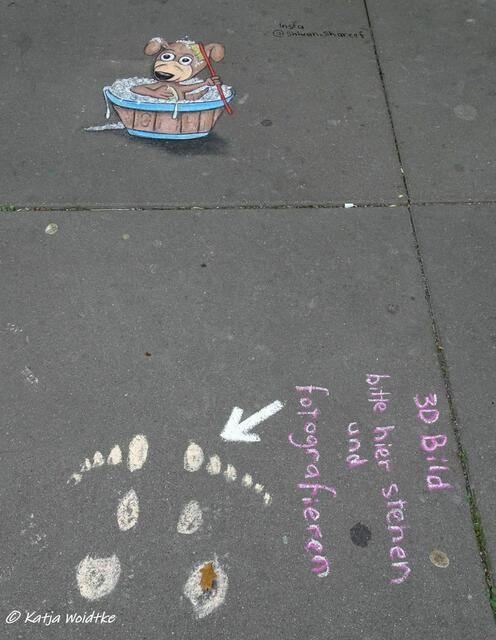 Insta
3D Bild
bitte hier stehen
und
fotografieren
© Katja Woidtke